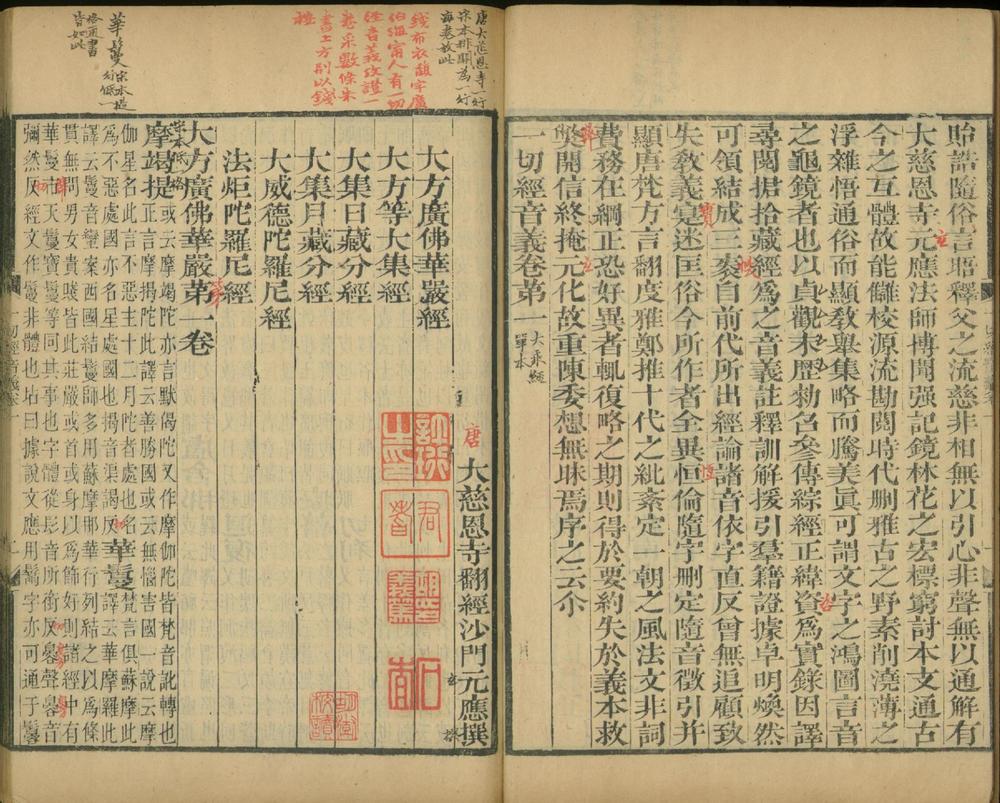 貽誥隨俗言晤釋父之流慈非相無以引心非聲無以通解有
大慈恩寺元應法師博聞强記鏡林花之宏標窮討本支通古
今之互體故能讎校源流勘閱時代刪雅古之野素削澆薄之
浮雜悟通俗而顯教舉集略而騰美真可謂文字之鴻圖言音
之龜鏡者也以貞觀末歷勑召參傳綜經正緯資為實錄因譯
尋閱捃拾藏經為之音義註釋訓解援引羣籍證據卓明煥然
可領結成三袠自前代所出經論諸音依字直反曾無追顧致
失教義寔迷匡俗今所作者全異恒倫隨字刪定隨音徵引并
顯唐梵方言翻度雅鄭推十代之紕紊定一朝之風法文非詞
費務在綱正恐好異者輒復略之期則得於要約失於義本故
獎開信終掩元化故重陳委想無昧焉序之云尒
一切經音義卷第一 大乘經單本
唐 大慈恩寺翻經沙門元應撰
大方廣佛華嚴經
大方等大集經
大集日藏分經
大集月藏分經
大威德陀羅尼經
法炬陀羅尼經
大方廣佛華嚴第一卷
摩竭提 或云摩竭陀亦言默偈陀又作摩伽陀皆梵音訛轉也
正言摩揭陀此譯云善勝國或云無惱害國一說云摩
伽星名此言不惡主十二月陀者處也名
為不惡處國亦名星處國也揭音渠謁反 華鬘 梵言俱蘇摩此
譯云鬘音蠻案西國結鬘師多用蘇摩那華行列結之以為條
貫無問男女貴賤皆此莊嚴或首或身以為飾好則諸經中有
華鬘市天鬘寶鬘等同其事也字體從髟音所銜反臱聲臱音
彌然反經文作鬘非體也坫曰據說文應用鬗字亦可通于鬘
唐大慈恩寺一行
宋本排開為一行
海老故此
錢布衣馥字廣
伯海甯人有一切
經音義攷證一
卷采數條朱
書上方別以錢
華鬘 宋本提行低一
格通書
皆如此